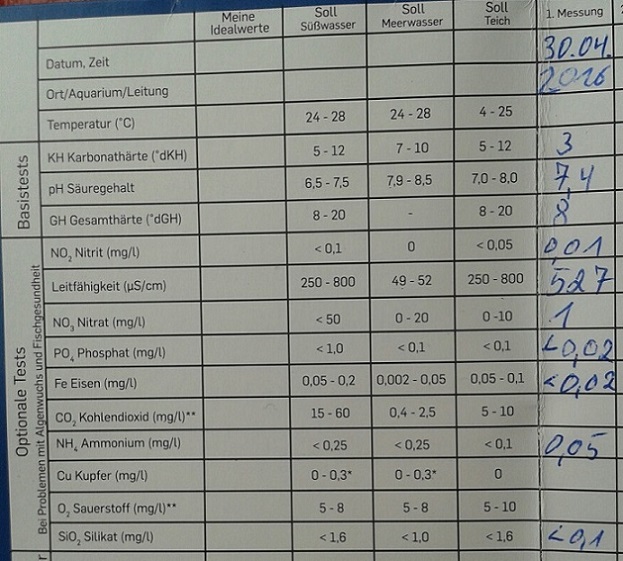 Meine Idealwerte Soll Süßwasser Soll Meerwasser Soll Teich 1. Messung
Datum, Zeit 30.04.
Ort/Aquarium/Leitung 2016
Temperatur (°C) 24 - 28 24 - 28 4 - 25
Basistests
KH Karbonathärte (°dKH) 5 - 12 7 - 10 5 - 12 3
pH Säuregehalt 6,5 - 7,5 7,9 - 8,5 7,0 - 8,0 7,4
GH Gesamthärte (°dGH) 8 - 20 - 8 - 20 8
Optionale Tests
Bei Problemen mit Algenwuchs und Fischgesundheit
NO₂ Nitrit (mg/l) < 0,1 0 < 0,05 0,01
Leitfähigkeit (µS/cm) 250 - 800 49 - 52 250 - 800 527
NO₃ Nitrat (mg/l) < 50 0 - 20 0 -10 1
PO₄ Phosphat (mg/l) < 1,0 < 0,1 < 0,1 <0,02
Fe Eisen (mg/l) 0,05 - 0,2 0,002 - 0,05 0,05 - 0,1 <0,02
CO₂ Kohlendioxid (mg/l)** 15 - 60 0,4 - 2,5 5 - 10
NH₄ Ammonium (mg/l) < 0,25 < 0,25 < 0,1 0,05
Cu Kupfer (mg/l) 0 - 0,3* 0 - 0,3* 0
O₂ Sauerstoff (mg/l)** 5 - 8 5 - 8 5 - 10
SiO₂ Silikat (mg/l) < 1,6 < 1,0 < 1,6 <0,1